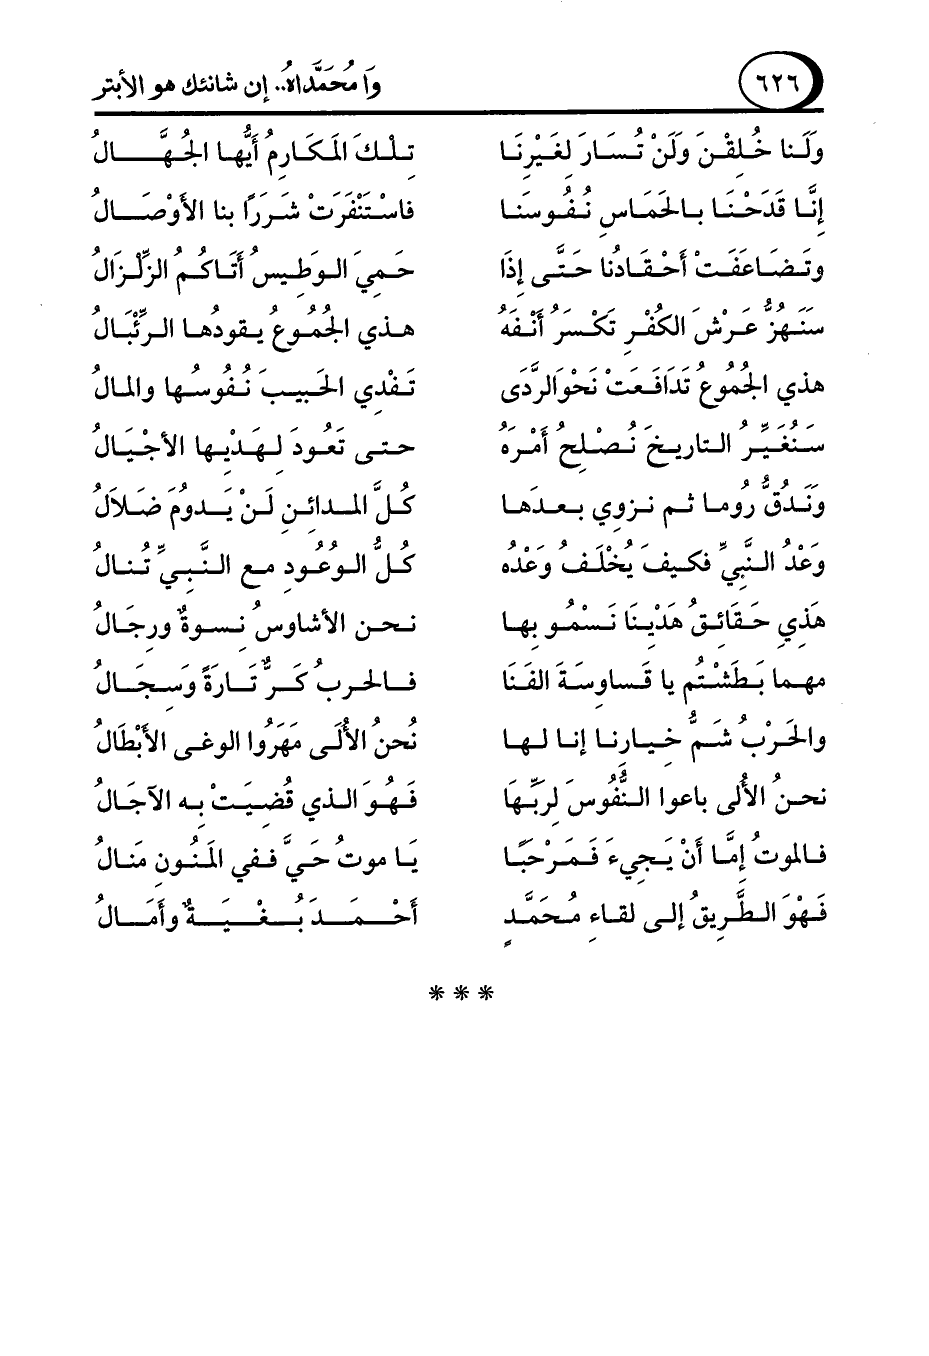 ٦٢٦ وَا مُحَمَّدَاهُ.. إن شانئك هو الأبتر
وَلَنا خُلِقْنَ وَلَنْ تُسَارَ لغَيْرِنَا تلْكَ المَكَارِمُ أيُّها الجُهَّالُ
إنَّا قَدَحْنَا بالحَمَاسِ نُفُوسنا فاسْتَنْفَرَتْ شَرَرًا بنا الأوْصَالُ
وتَضَاعَفَتْ أحْقَادُنا حَتَّى إذَا حَمِيَ الوَطِيسُ أتَاكُمُ الزِّلْزَالُ
سَنَهُزُّ عَرْشَ الكُفْرِ نَكْسَرُ أنْفَهُ هذي الجُمُوعُ يقودُها الرِّئْبَالُ
هذي الجُمُوعُ تَدَافَعَتْ نَحْوَ الرَّدَى تَفْدِي الحَبِيبَ نُفُوسُها والمالُ
سَنُغَيِّرُ التاريخَ نُصْلِحُ أمْرَهُ حتى تَعُودَ لِهَدْيِها الأجْيَالُ
ونَدُقُّ رُومَا ثم نزوي بعدَها كُلَّ المدائنِ لَنْ يَدُومَ ضَلاَلُ
وَعْدُ النَّبِيِّ فكيفَ يُخْلَفُ وَعْدُهُ كُلُّ الوُعُودِ مع النَّبِيِّ تُنالُ
هَذِي حَقَائِقُ هَدْيِنَا نَسْمُو بِها نحن الأشاوسُ نسوةٌ ورجَالُ
مهما بَطَشْتُم يا قَساوِسَةَ الفَنَا فالحربُ كَرٌّ تَارَةً وَسِجَالُ
والحَرْبُ شَمُّ خِيارنا إنا لها نُحنُ الأُلَى مَهَرُوا الوغى الأبْطَالُ
نحنُ الأُلى باعوا النُّفُوسَ لِرَبِّهَا فَهُوَ الذي قُضِيَتْ بِهِ الآجَالُ
فالموتُ إمَّا أنْ يَجِيءَ فَمَرْحَبًا يَا موتُ حَيَّ ففي المَنُونِ مَنَالُ
فَهْوَ الطَّرِيقُ إلى لقاءِ مُحَمَّدٍ أحْمَدَ بُغْيَةٌ وأمَالُ
* * *